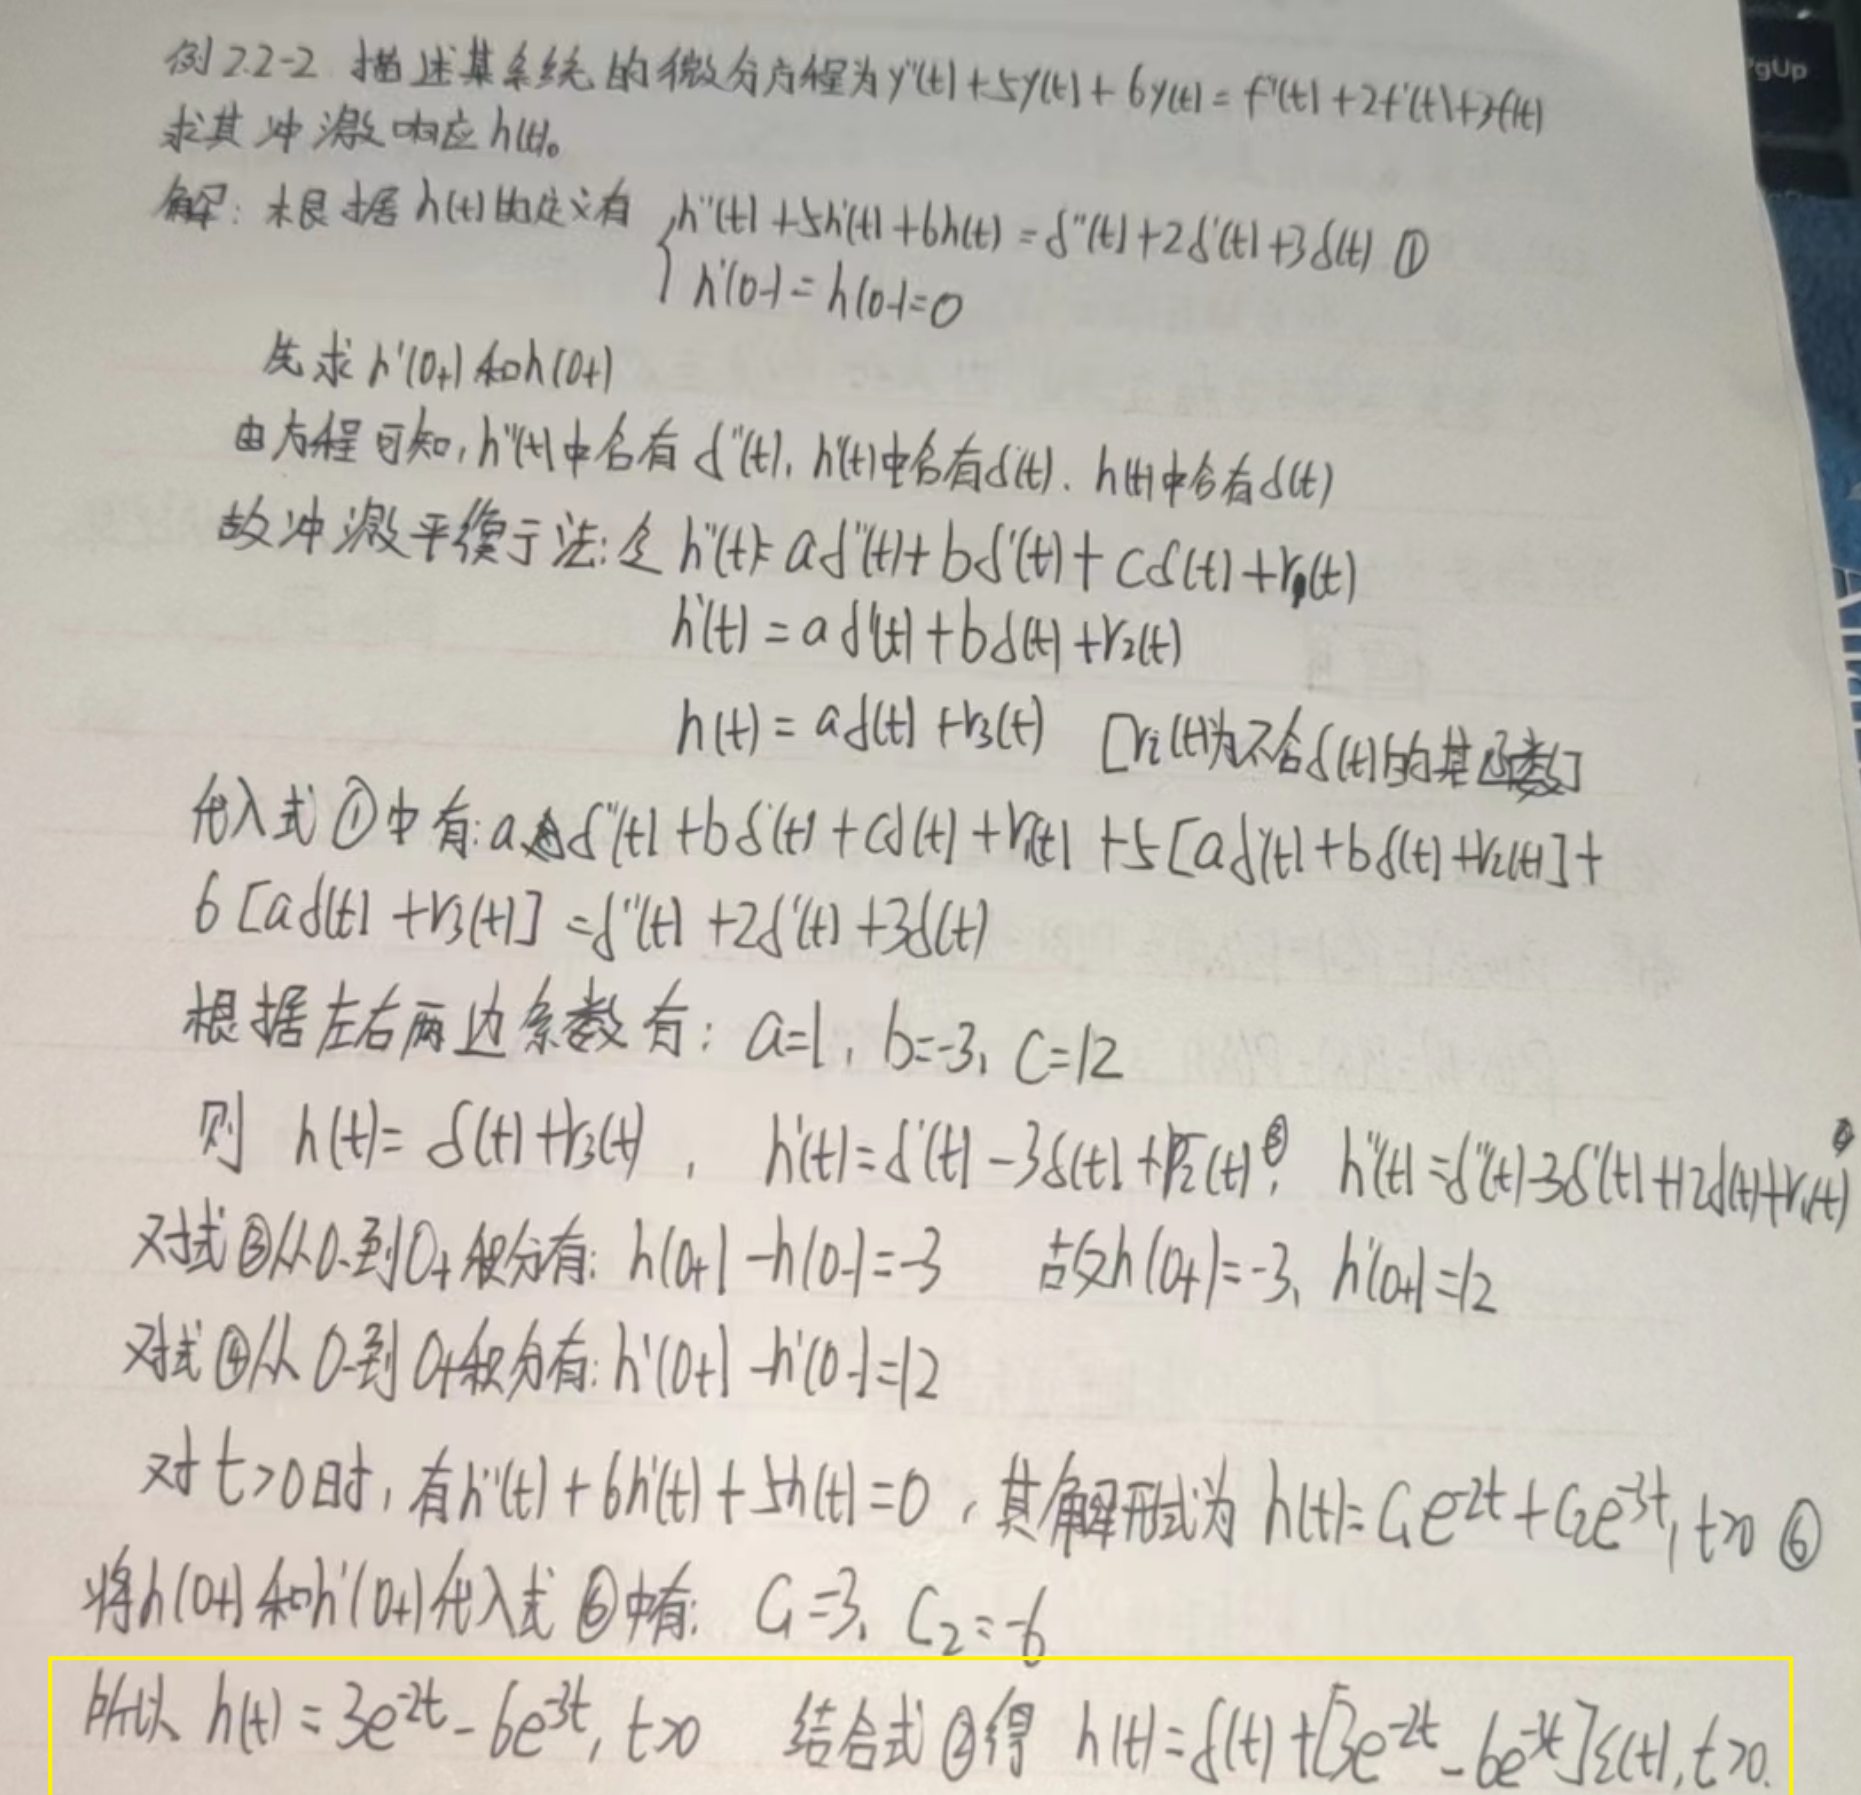 例2.2-2 描述某系统的微分方程为y''(t)+5y'(t)+6y(t)=f''(t)+2f'(t)+3f(t)
求其冲激响应h(t)。
解：根据h(t)的定义有 h''(t)+5h'(t)+6h(t)=δ''(t)+2δ'(t)+3δ(t) ①
h'(0-)=h(0-)=0
先求h'(0+)和h(0+)
由方程可知，h''(t)中含有δ''(t)，h'(t)中含有δ'(t)．h(t)中含有δ(t)
故冲激平衡于法：令h''(t)=aδ''(t)+bδ'(t)+cδ(t)+r1(t)
h'(t)=aδ'(t)+bδ(t)+r2(t)
h(t)=aδ(t)+r3(t) [ri(t)为不含δ(t)的某函数]
代入式①中有：aδ''(t)+bδ'(t)+cδ(t)+r1(t)+5[aδ'(t)+bδ(t)+r2(t)]+
6[aδ(t)+r3(t)]=δ''(t)+2δ'(t)+3δ(t)
根据左右两边系数有：a=1，b=-3，c=12
则 h(t)=δ(t)+r3(t)，h'(t)=δ'(t)-3δ(t)+r2(t)③，h''(t)=δ''(t)-3δ'(t)+12δ(t)+r1(t)④
对式③从0-到0+积分有：h(0+)-h(0-)=-3 故h(0+)=-3，h'(0+)=12
对式④从0-到0+积分有：h'(0+)-h'(0-)=12
对t>0时，有h''(t)+6h'(t)+5h(t)=0，其解形式为h(t)=C1e^-2t+C2e^-3t，t>0 ⑥
将h(0+)和h'(0+)代入式⑥中有：C1=3，C2=-6
所以 h(t)=3e^-2t-6e^-3t，t>0 结合式②得 h(t)=δ(t)+[3e^-2t-6e^-3t]ε(t)，t>0.
PgUp